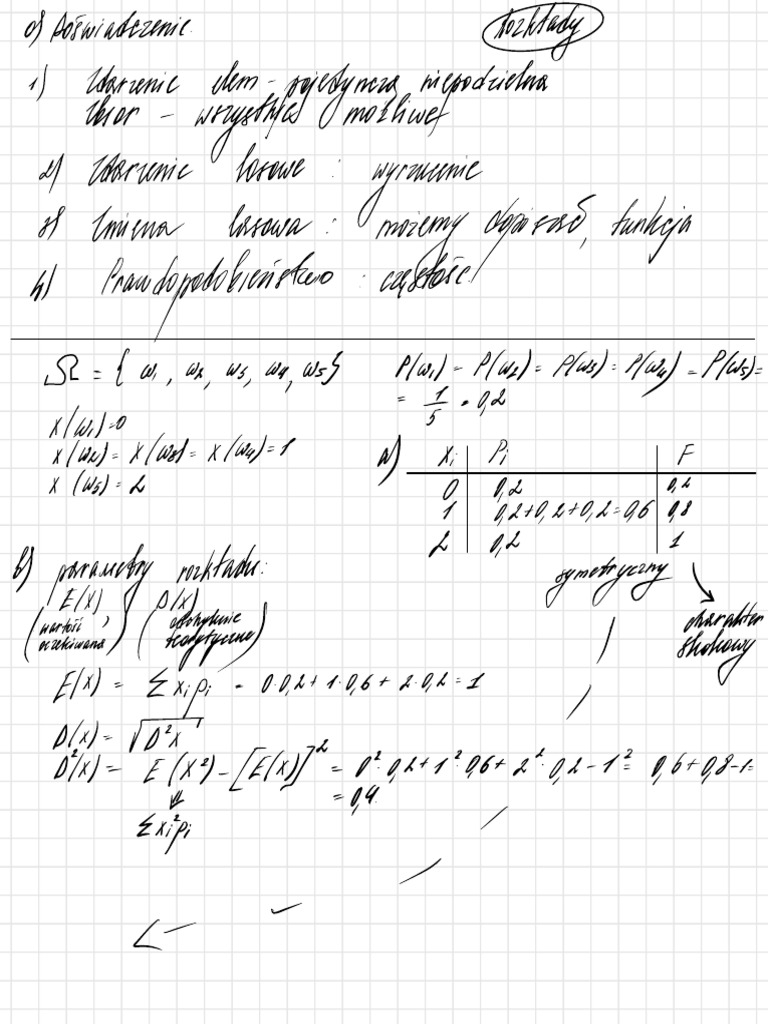 0) Doświadczenie
Rozkłady
1) Zdarzenie elem - pojedyncza niepodzielna
Zbiór - wszystkie możliwe
2) Zdarzenie losowe : wyrzucenie
3) Zmienna losowa : możemy dopisać, funkcja
4) Prawdopodobieństwo : częstość
Ω = { ω1, ω2, ω3, ω4, ω5}
P(ω1) = P(ω2) = P(ω3) = P(ω4) = P(ω5) =
= 1/5 = 0,2
X(ω1)=0
X(ω2)= X(ω3)= X(ω4)=1
X (ω5)= 2
a)
Xi | Pi | F
0 | 0,2 | 0,2
1 | 0,2+0,2+0,2=0,6 | 0,8
2 | 0,2 | 1
symetryczny
charakter
skokowy
b) parametry rozkładu:
E(X) , D(X)
(wartość oczekiwana) (odchylenie teoretyczne)
E(X) = Σ xi pi = 0·0,2+ 1·0,6 + 2·0,2 = 1
D(X)= √D²X
D²(X) = E(X²) - [E(X)]² = 0²·0,2+1²·0,6+ 2²·0,2 - 1² = 0,6+0,8-1=
= 0,4
Σxi²pi